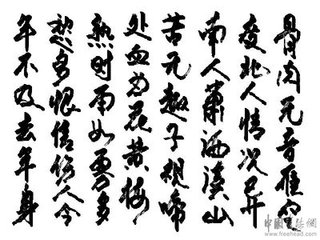 骨肉无音雁
北人情况已
南人萧洒溪山
苦无趣子规啼
处血为花黄梅
熟时雨如雾多
愁多恨信伤人今
年不及去年身
中国书法网
www.freehead.com